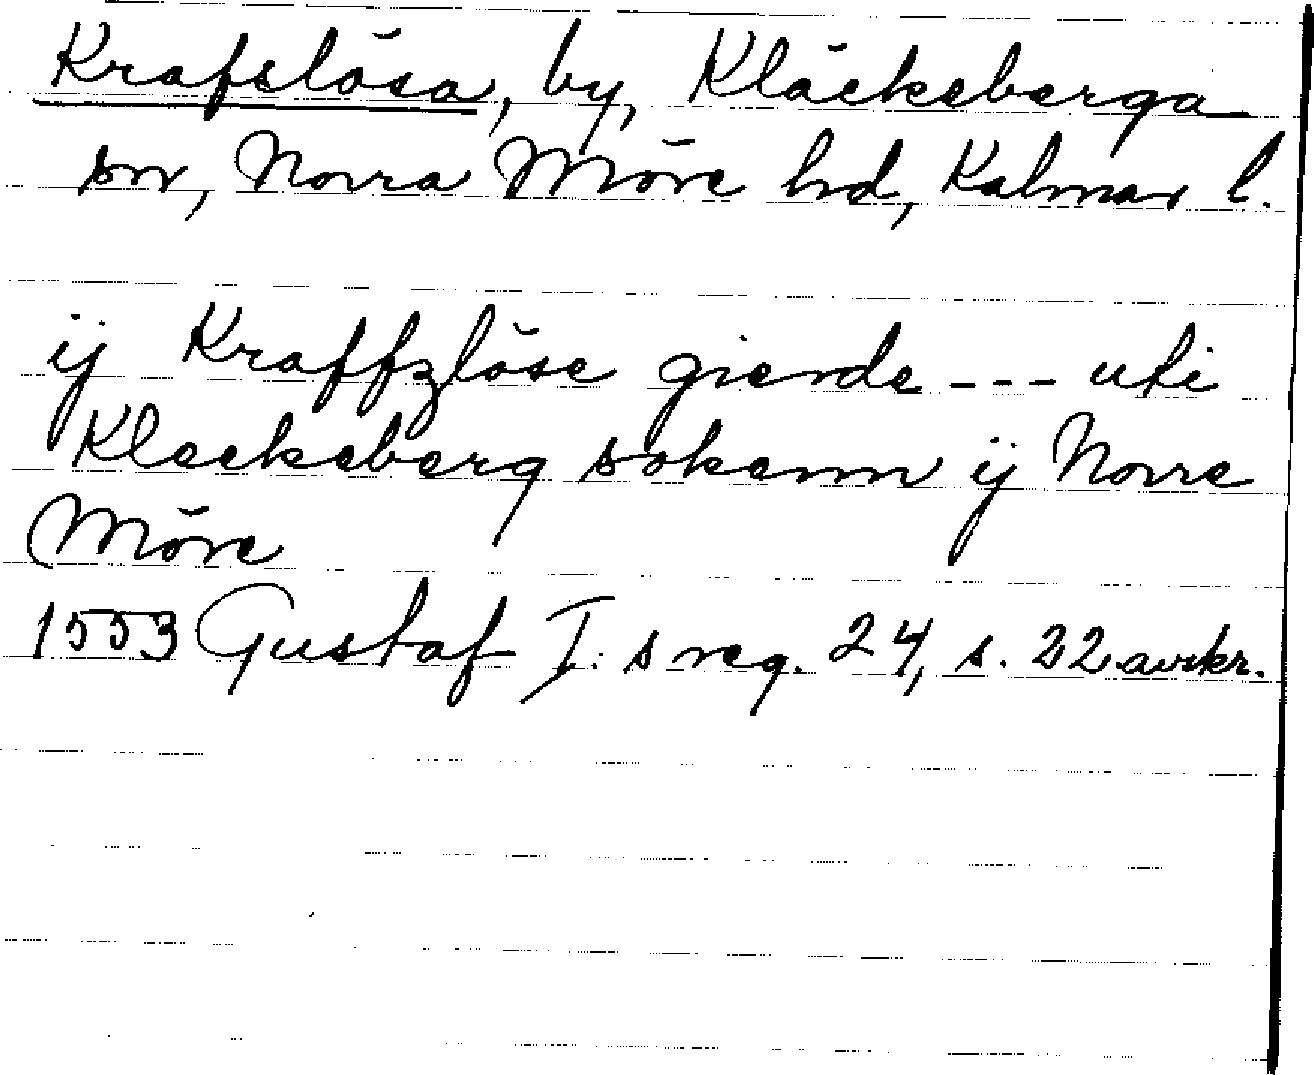 Krafslösa, by, Kläckeberga
sn, Norra Möre hd, Kalmar l.
ij Kraffzlöse gierde --- uti
Kleckeberg sokenn ij Norre
Möre
1553 Gustaf I:s reg. 24, s. 22 avskr.